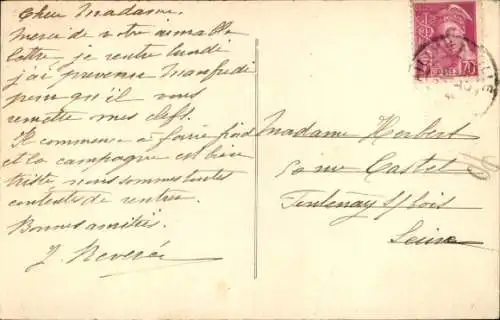 Chère Madame.
Merci de votre aimable
lettre, je rentre lundi
j'ai prevenu Manfredi
pour qu'il vous
remette mes clefs.
Il commence à faire froid
et la campagne est bien
triste nous sommes toutes
contentes de rentrer
Bonnes amitiés.
J. Reverée
Madame Herbert
50 rue Castel
Fontenay S/bois
Seine
70